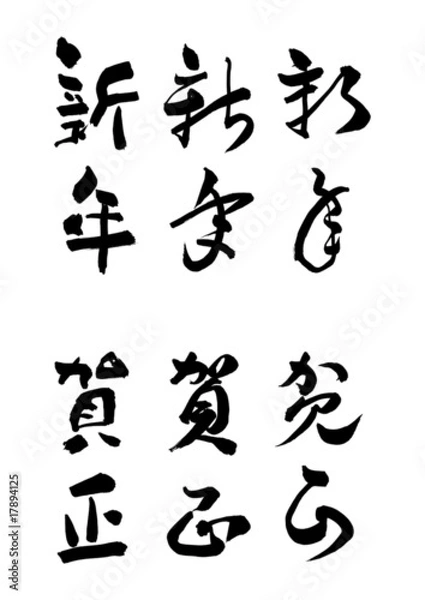 新年
新年
新年
賀正
賀正
賀正
Adobe Stock | #17894125